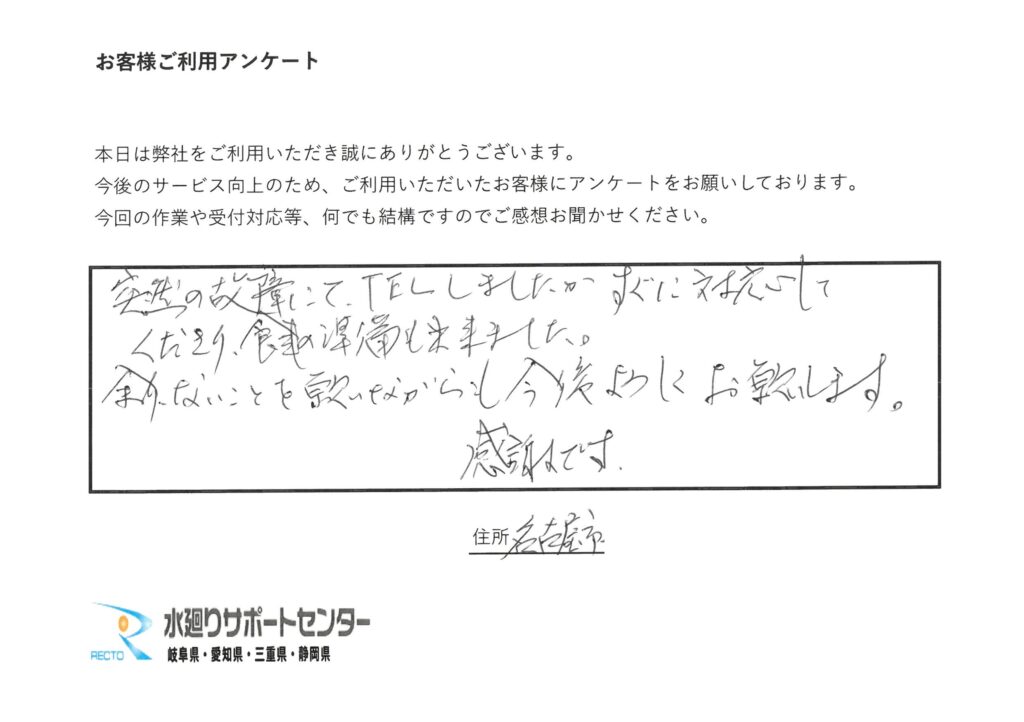 お客様ご利用アンケート
本日は弊社をご利用いただき誠にありがとうございます。
今後のサービス向上のため、ご利用いただいたお客様にアンケートをお願いしております。
今回の作業や受付対応等、何でも結構ですのでご感想お聞かせください。
突然の故障にて、TELしましたが すぐに対応して
くださり、食事の準備も出来ました。
余りないことを願いながらも今後よろしくお願いします。
感謝です。
住所 名古屋市
RECTO 水廻りサポートセンター
岐阜県・愛知県・三重県・静岡県